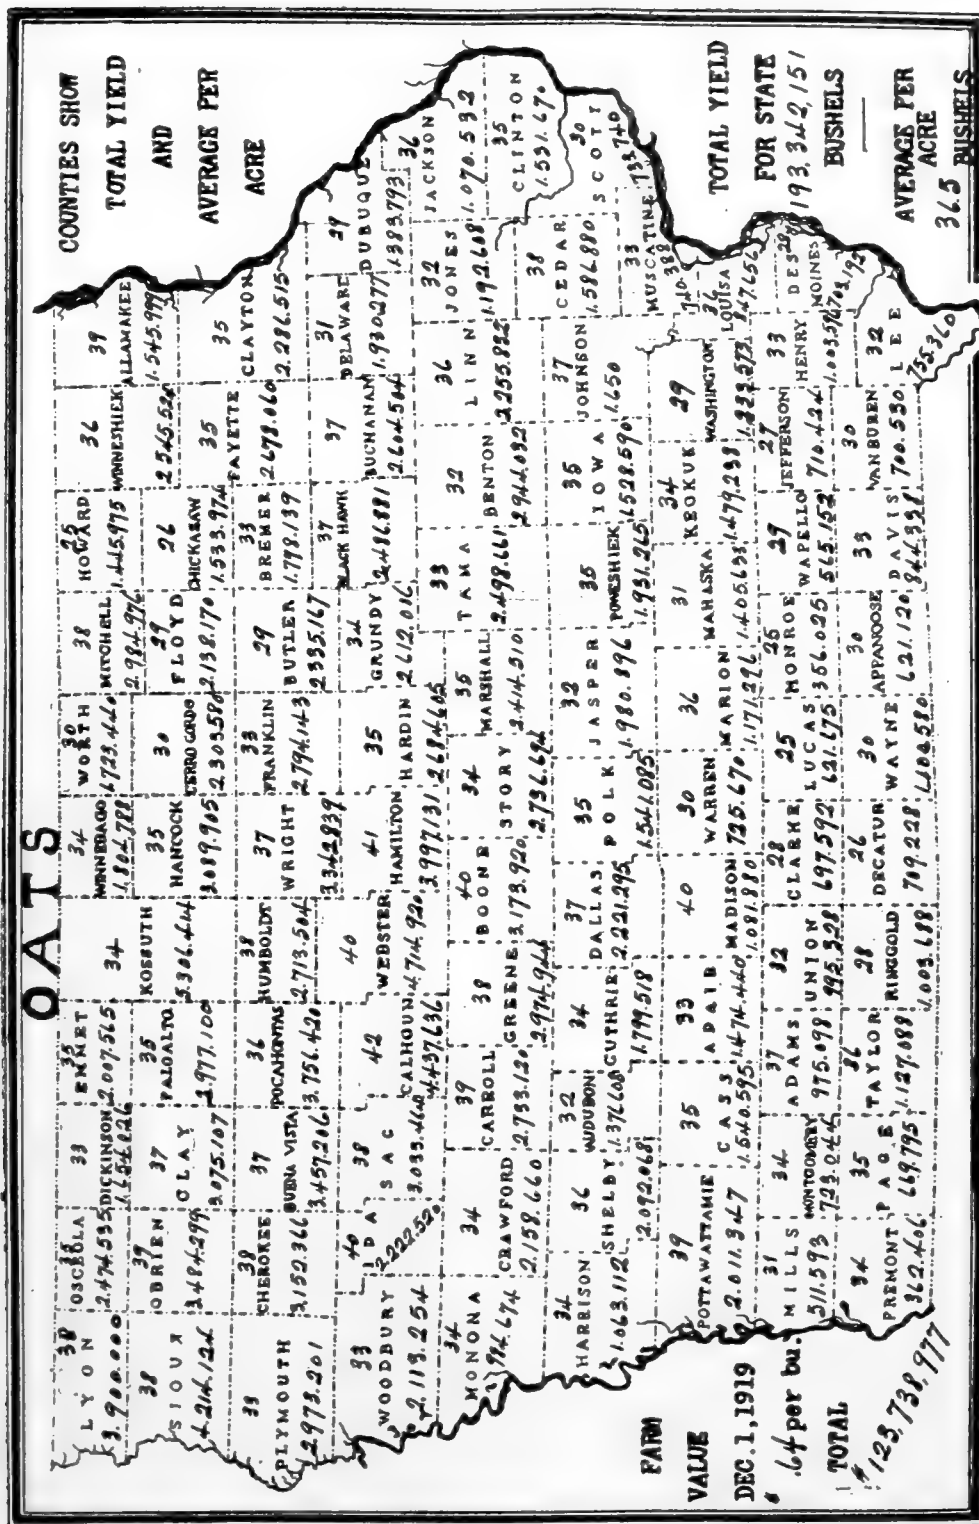 OATS
COUNTIES SHOW
TOTAL YIELD
AND
AVERAGE PER
ACRE
38
LYON
3.900.000
OSCEOLA
2.474.535
33
DICKINSON
35
EMMET
2.007.565
34
KOSSUTH
5.306.414
34
WINNEBAGO
1.804.788
30
WORTH
1.723.440
38
MITCHELL
2.984.976
25
HOWARD
1.445.975
36
WINNESHIEK
2.545.524
39
ALLAMAKEE
1.545.999
38
SIOUX
4.214.124
39
OBRIEN
3.484.299
37
CLAY
3.075.107
35
PALOALTO
2.977.100
35
HANCOCK
3.089.905
30
CERRO GORDO
2.303.580
29
FLOYD
2.138.170
26
CHICKASAW
1.533.974
35
FAYETTE
2.678.060
35
CLAYTON
2.286.515
PLYMOUTH
2.973.201
38
CHEROKEE
3.152.366
37
BUENA VISTA
3.457.206
36
POCAHONTAS
3.756.420
38
HUMBOLDT
2.713.504
37
WRIGHT
3.342.839
33
FRANKLIN
2.794.143
29
BUTLER
2.335.167
33
BREMER
1.798.139
33
WOODBURY
2.113.254
40
IDA
2.222.520
38
SAC
3.033.440
42
CALHOUN
4.437.636
40
WEBSTER
4.714.920
41
HAMILTON
3.997.131
35
HARDIN
2.684.605
34
GRUNDY
2.612.016
37
BLACK HAWK
2.486.881
37
BUCHANAN
2.604.504
31
DELAWARE
1.930.277
39
DUBUQUE
1.383.793
34
MONONA
34
CRAWFORD
2.158.660
39
CARROLL
2.733.120
38
GREENE
2.974.944
40
BOONE
3.173.920
34
STORY
2.736.694
35
MARSHALL
2.414.510
33
TAMA
2.498.661
32
BENTON
2.944.032
36
LINN
2.255.832
32
JONES
1.192.608
36
JACKSON
1.070.532
34
HARRISON
1.063.112
36
SHELBY
2.092.068
32
AUDUBON
1.376.600
34
GUTHRIE
1.799.518
37
DALLAS
2.221.295
35
POLK
1.541.085
32
JASPER
1.980.896
35
POWESHIEK
1.931.265
35
IOWA
1.528.590
37
JOHNSON
1.650
38
CEDAR
1.586.880
35
CLINTON
1.531.670
30
SCOTT
733.740
33
MUSCATINE
39
POTTAWATTAMIE
2.011.347
35
CASS
1.540.595
33
ADAIR
1.474.440
40
MADISON
1.081.880
30
WARREN
725.670
36
MARION
1.171.296
31
MAHASKA
1.405.633
34
KEOKUK
1.479.238
29
WASHINGTON
36
LOUISA
31
MILLS
511.593
34
MONTGOMERY
723.044
37
ADAMS
975.098
32
UNION
995.328
28
CLARKE
697.592
25
LUCAS
621.675
25
MONROE
356.025
29
WAPELLO
565.152
27
JEFFERSON
710.424
33
HENRY
DES
MOINES
34
FREMONT
362.406
35
PAGE
669.795
36
TAYLOR
1.127.088
28
RINGGOLD
1.003.688
26
DECATUR
709.228
30
WAYNE
30
APPANOOSE
621.120
33
DAVIS
30
VANBUREN
700.530
32
LEE
755.360
FARM
VALUE
DEC. 1, 1919
.64 per bu.
TOTAL
$123,738,977
TOTAL YIELD
FOR STATE
193,342,151
BUSHELS
AVERAGE PER
ACRE
36.5
BUSHELS